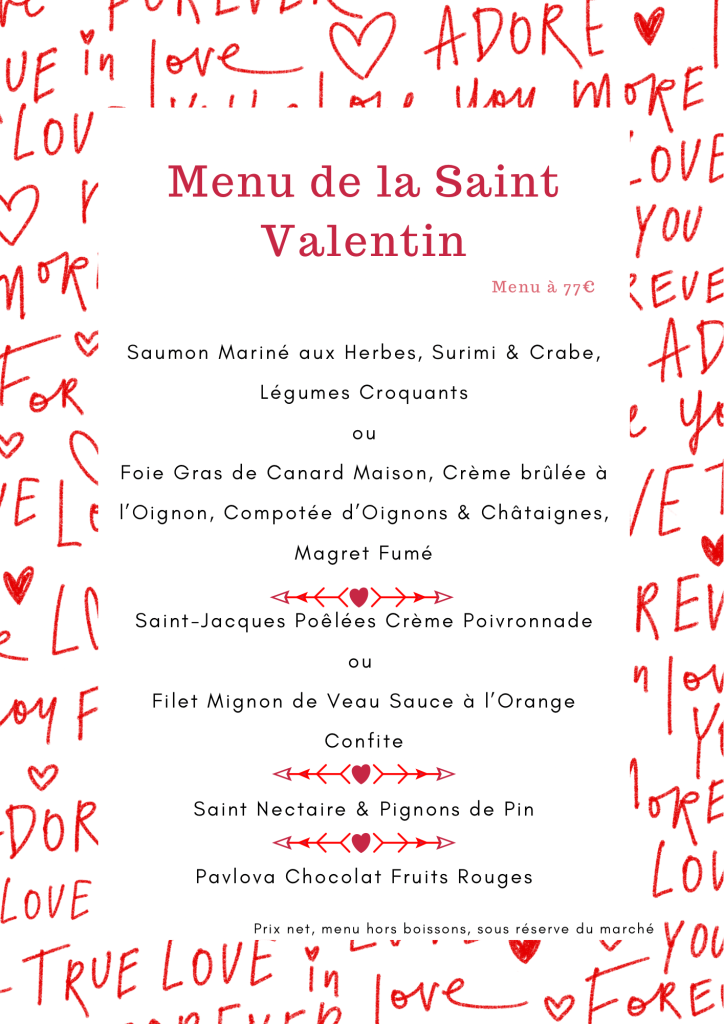 FOREVER
TRUE in love ADORE
you more
LOVE
Menu de la Saint
Valentin
Menu à 77€
Saumon Mariné aux Herbes, Surimi & Crabe,
Légumes Croquants
ou
Foie Gras de Canard Maison, Crème brûlée à
l'Oignon, Compotée d'Oignons & Châtaignes,
Magret Fumé
Saint-Jacques Poêlées Crème Poivronnade
ou
Filet Mignon de Veau Sauce à l'Orange
Confite
Saint Nectaire & Pignons de Pin
Pavlova Chocolat Fruits Rouges
Prix net, menu hors boissons, sous réserve du marché
LOVE
YOU
TRUE LOVE in love